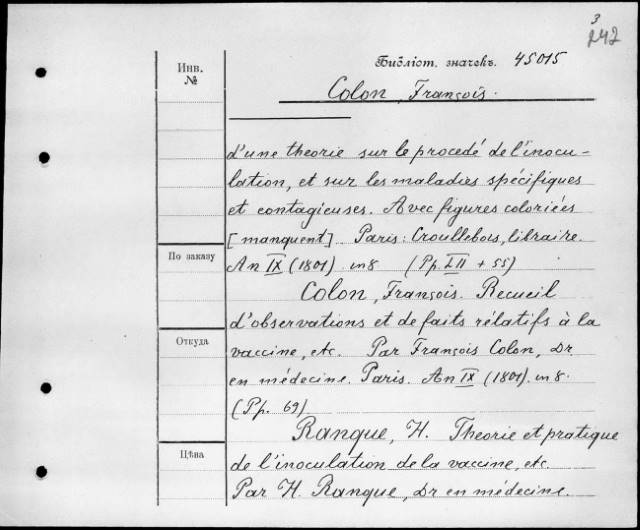 3
242
Инв.
№
Библіот. значекъ. 45015
Colon, François.
d'une theorie sur le procedé de l'inocu-
lation, et sur les maladies spécifiques
et contagieuses. Avec figures coloriées
[manquent] Paris: Croullebois, libraire.
По заказу
An IX (1801) in 8 (Pp. LII + 55)
Colon, François. Recueil
d'observations et de faits rélatifs à la
Откуда
vaccine, etc. Par François Colon, Dr
en médecine. Paris. An IX (1801). in 8.
(Pp. 69)
Ranque, H. Theorie et pratique
Цѣна
de l'inoculation de la vaccine, etc.
Par H. Ranque, Dr en médecine.